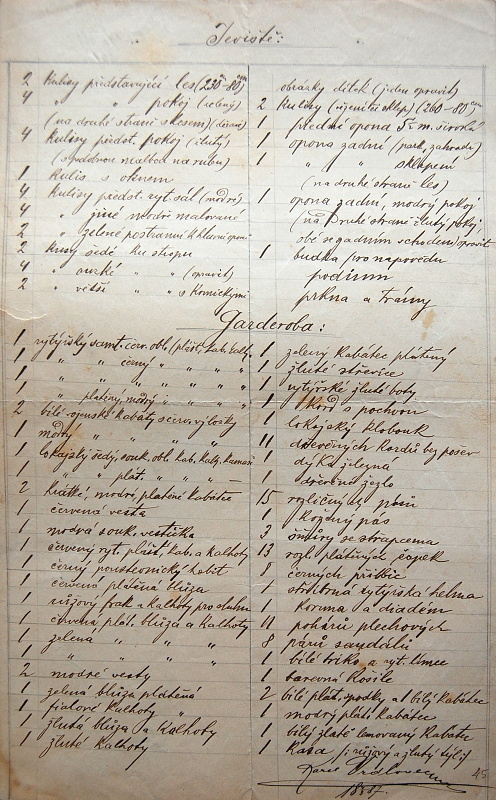 Jeviště:
2 kulisy představující les (230 cm – 80 cm)
4 " " pokoj (zelený)
(na druhé straně s lesem) (děravé)
4 kulisy předst. pokoj (žlutý)
(s malbou na rubu)
1 kulis s oknem
4 kulisy předst. ryt. sál (modré)
4 " jiné modré malované
2 " zelené postranní k hlavní oponě
2 kusy šedé ku stropu
4 " úzké " " (opravit)
2 " větší " " s komickými
obrázky dítek (jednu opravit)
2 kulisy (vězení též sklep) (260 – 80 cm)
1 přední opona 5 m. široká
1 opona zadní (park, zahrada)
1 " " sklepení
(na druhé straně les)
1 opona zadní, modrý pokoj
(na druhé straně žlutý pokoj,
obě se zadním vchodem) opravit
1 budka pro nápovědu
podium
prkna a trámy
Garderoba:
1 rytířský samt. červ. obl. (plášť, kab. kalh.
1 " " černý " " " "
1 " " " " " "
1 " plátěný, modrý " " " "
2 bílé vojenské kabáty s červ. výložky
1 modrý " " " "
1 lokajský šedý, souk. obl. kab. kalh. kamaše
1 " " plát. " " —
2 krátké, modré, plátěné kabátce
1 červená vesta
1 modrá souk. vestička
1 červený ryt. plášť, kab. a kalhoty
1 černý poustevnický habit
1 červená plátěná blůza
1 růžový frak a kalhoty pro sluhu
1 červená plát. blůza a kalhoty
1 zelená " " "
1 " " " "
2 modré vesty
1 zelená blůza plátěná
1 fialové kalhoty
1 žlutá blůza a kalhoty
1 žluté kalhoty
1 zelený kabátec plátěný
1 žluté střevíce
1 rytířské žluté boty
1 kord s pochvou
1 lokajský klobouk
11 dřevěných kordů bez pošev
1 dýka železná
1 dřevěné žezlo
15 rozličných
1 kožený pás
3 šňůry se střapcema
13 rozl. plátěných čapek
8 černých přílbic
1 stříbrná rytířská helma
1 koruna a diadém
11 pohárů plechových
8 párů sandálů
1 bílé triko a ryt. límec
1 barevná košile
2 bílé plát. spodky a 1 bílý kabátec
1 modrý plát. kabátec
1 bílý zlatě lemovaný kabátec
1 kasa (: růžový a žlutý týl :)
Karel
45